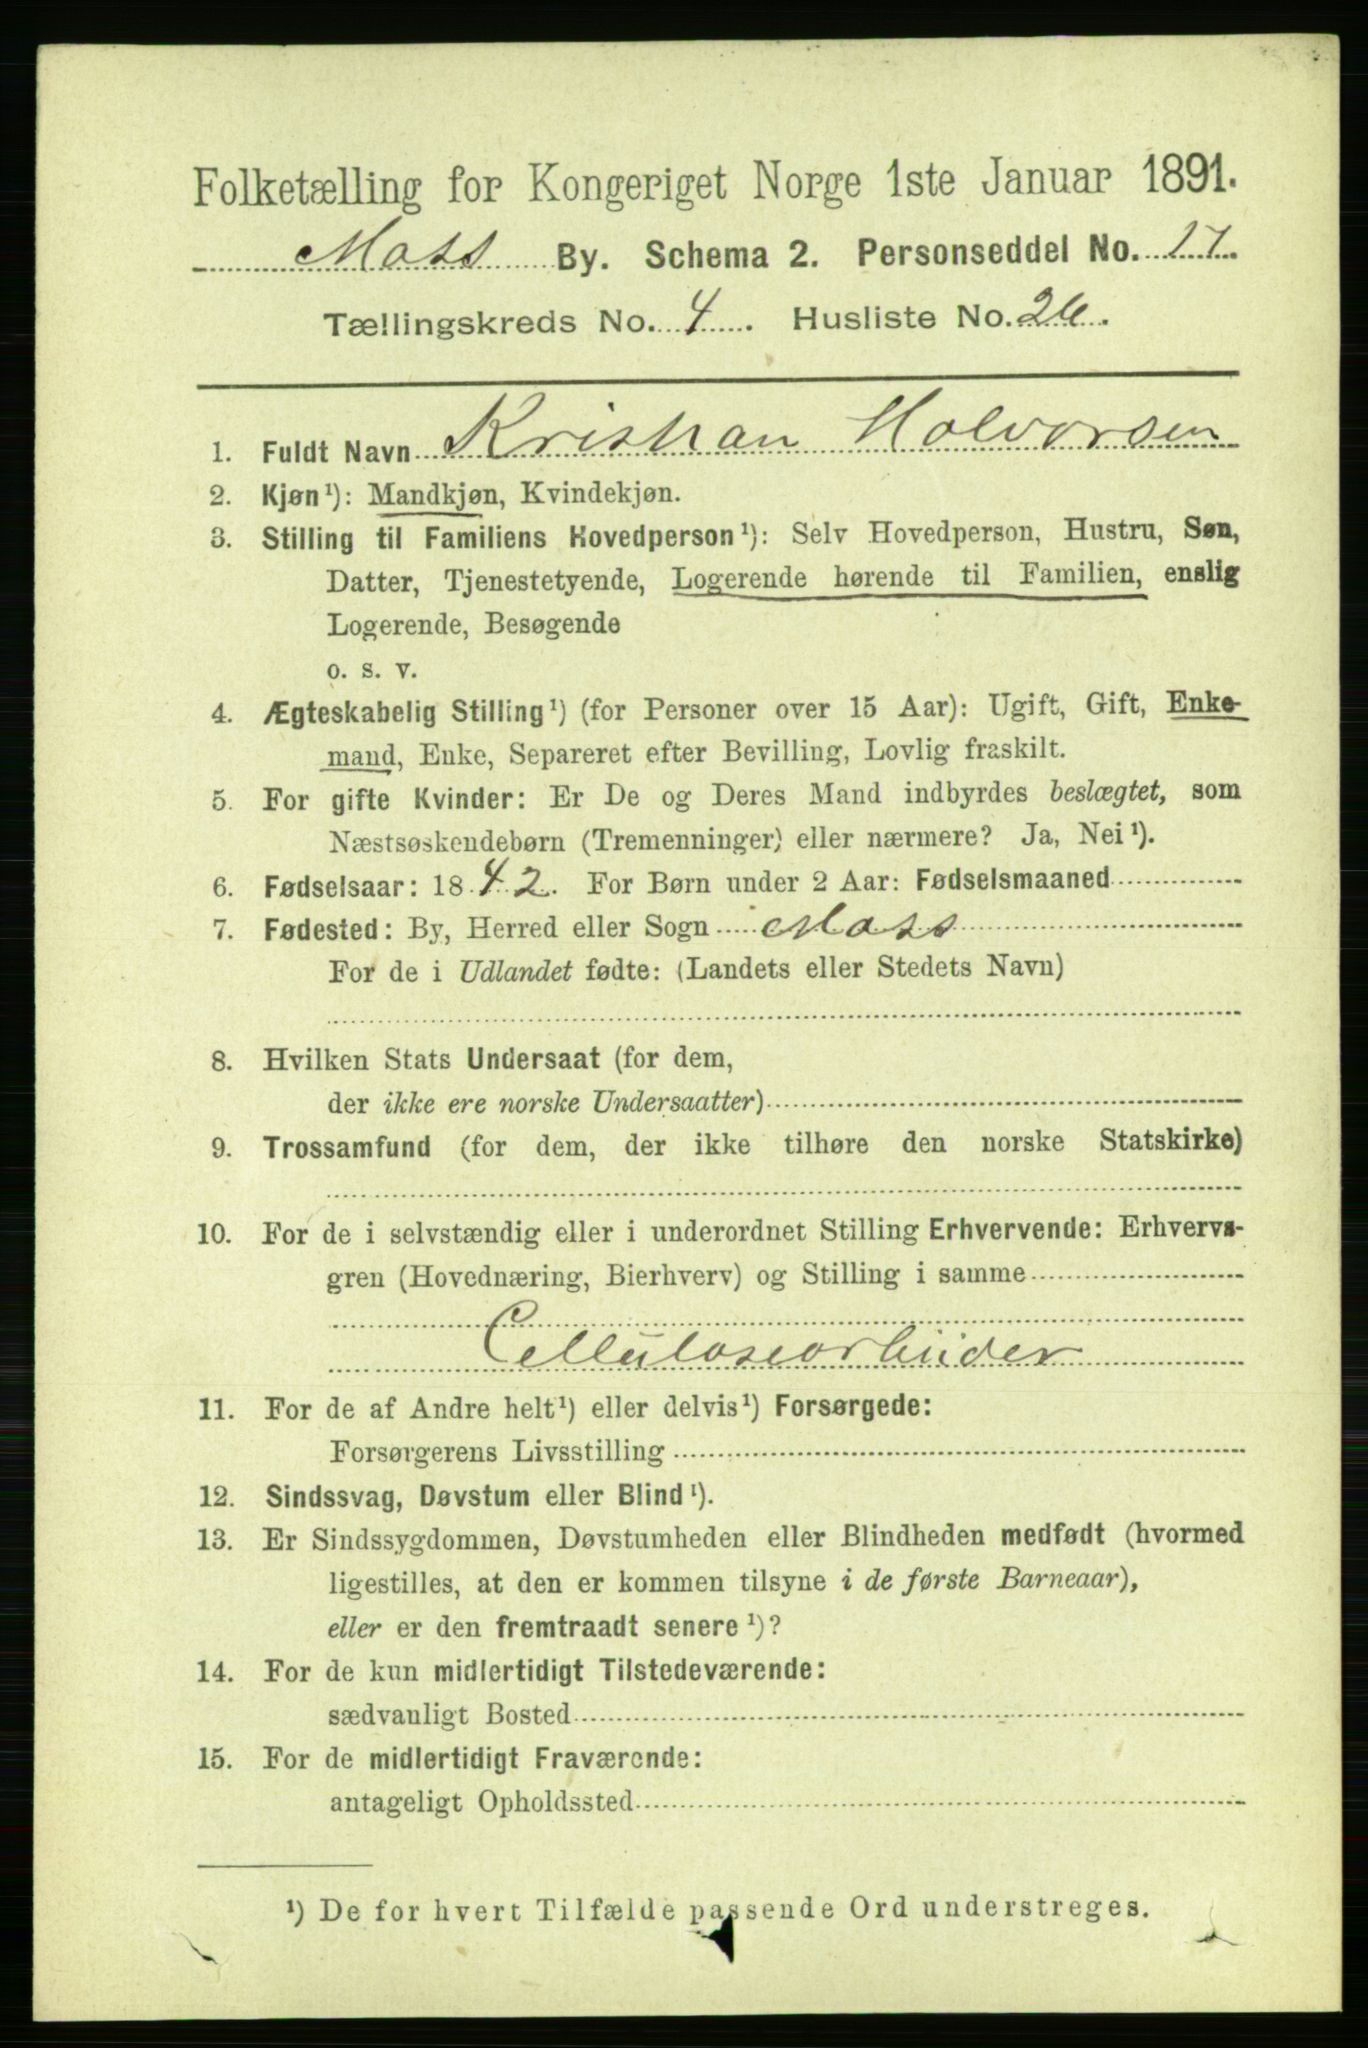 Folketælling for Kongeriget Norge 1ste Januar 1891.
Moss By. Schema 2. Personseddel No. 17.
Tællingskreds No. 4. Husliste No. 26.
1. Fuldt Navn Kristian Halvorsen
2. Kjøn¹): Mandkjøn, Kvindekjøn.
3. Stilling til Familiens Hovedperson¹): Selv Hovedperson, Hustru, Søn,
Datter, Tjenestetyende, Logerende hørende til Familien, enslig
Logerende, Besøgende
o. s. v.
4. Ægteskabelig Stilling¹) (for Personer over 15 Aar): Ugift, Gift, Enke-
mand, Enke, Separeret efter Bevilling, Lovlig fraskilt.
5. For gifte Kvinder: Er De og Deres Mand indbyrdes beslægtet, som
Næstsøskendebørn (Tremenninger) eller nærmere? Ja, Nei¹).
6. Fødselsaar: 1842. For Børn under 2 Aar: Fødselsmaaned
7. Fødested: By, Herred eller Sogn Moss
For de i Udlandet fødte: (Landets eller Stedets Navn)
8. Hvilken Stats Undersaat (for dem,
der ikke ere norske Undersaatter)
9. Trossamfund (for dem, der ikke tilhøre den norske Statskirke)
10. For de i selvstændig eller i underordnet Stilling Erhvervende: Erhvervs-
gren (Hovednæring, Bierhverv) og Stilling i samme
Cellulosearbeider
11. For de af Andre helt¹) eller delvis¹) Forsørgede:
Forsørgerens Livsstilling
12. Sindssvag, Døvstum eller Blind¹).
13. Er Sindssygdommen, Døvstumheden eller Blindheden medfødt (hvormed
ligestilles, at den er kommen tilsyne i de første Barneaar),
eller er den fremtraadt senere¹)?
14. For de kun midlertidigt Tilstedeværende:
sædvanligt Bosted
15. For de midlertidigt Fraværende:
antageligt Opholdssted
¹) De for hvert Tilfælde passende Ord understreges.